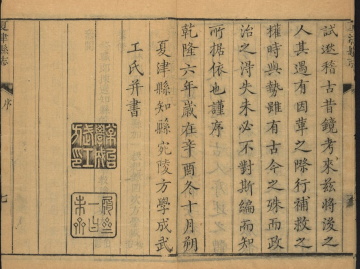 試遡稽古昔鏡考來茲將後之
人其遇有因革之際行補救之
權時與勢雖有古今之殊而政
治之得失未必不對斯編而知
所據依也謹序
乾隆六年歲在辛酉冬十月朔
夏津縣知縣宛陵方學成武
工氏并書
夏津縣志
序
七